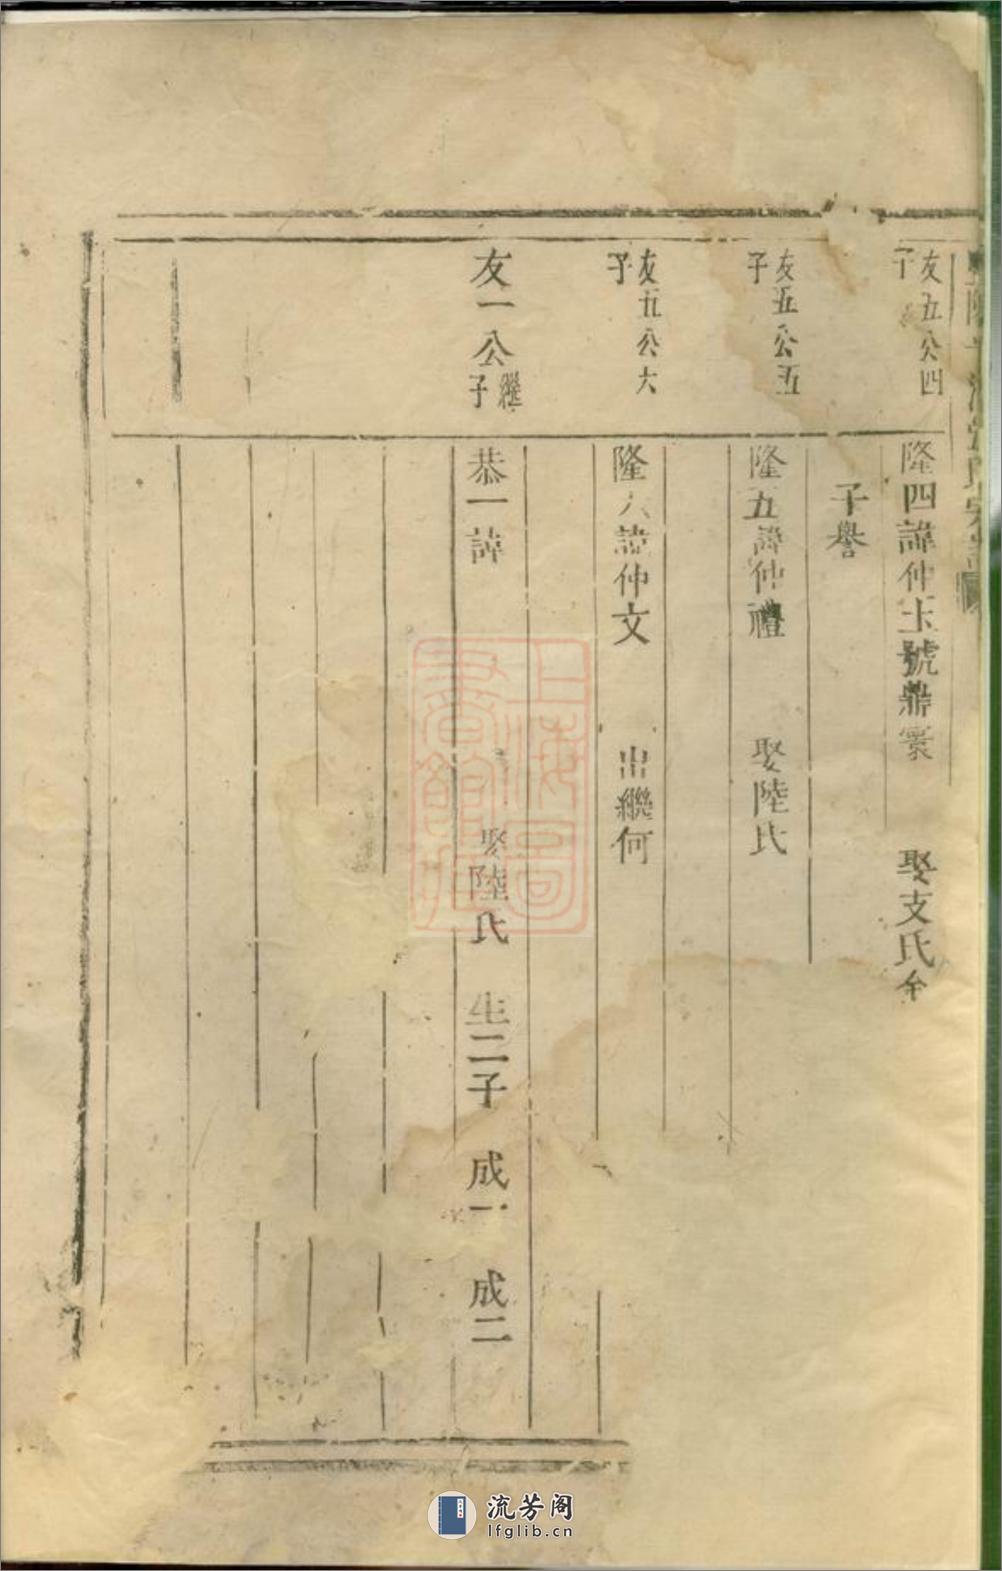 友五公四
子
隆四諱仲玉號鼎寰　娶支氏
子譽
友五公五
子
隆五諱仲禮　娶陸氏
友五公六
子
隆六諱仲文　出繼何
友一公繼子
恭一諱　娶陸氏　生二子　成一　成二
上海圖書館藏
流芳阁
lfglib.cn